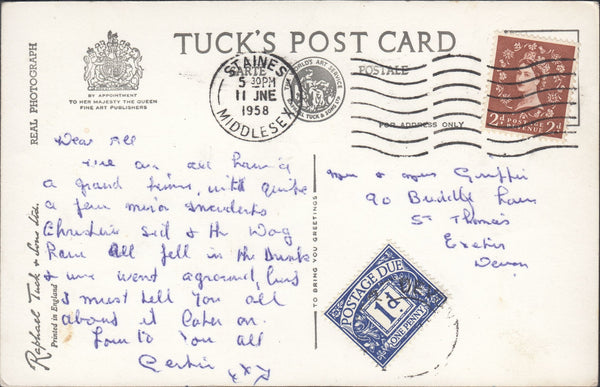 TUCK'S POST CARD
CARTE POSTALE
BY APPOINTMENT
TO HER MAJESTY THE QUEEN
FINE ART PUBLISHERS
REAL PHOTOGRAPH
STAINES
5 30PM
11 JNE
1958
MIDDLESEX
THE WORLD'S ART SERVICE
RAPHAEL TUCK & SONS LTD
FOR ADDRESS ONLY
2d POSTAGE REVENUE 2d
Dear All
We are all having
a grand time, with quite
a few minor incidents
Christine Sid & the Wag
Have all fell in the Drink
& we went aground, but
I must tell you all
about it later on.
Love to you all
xxx
Mr & Mrs Griffin
90 Buddle Lane
St Thomas
Exeter
Devon
POSTAGE DUE
1d.
ONE PENNY
TO BRING YOU GREETINGS
Raphael Tuck & Sons Ltd.
Printed in England